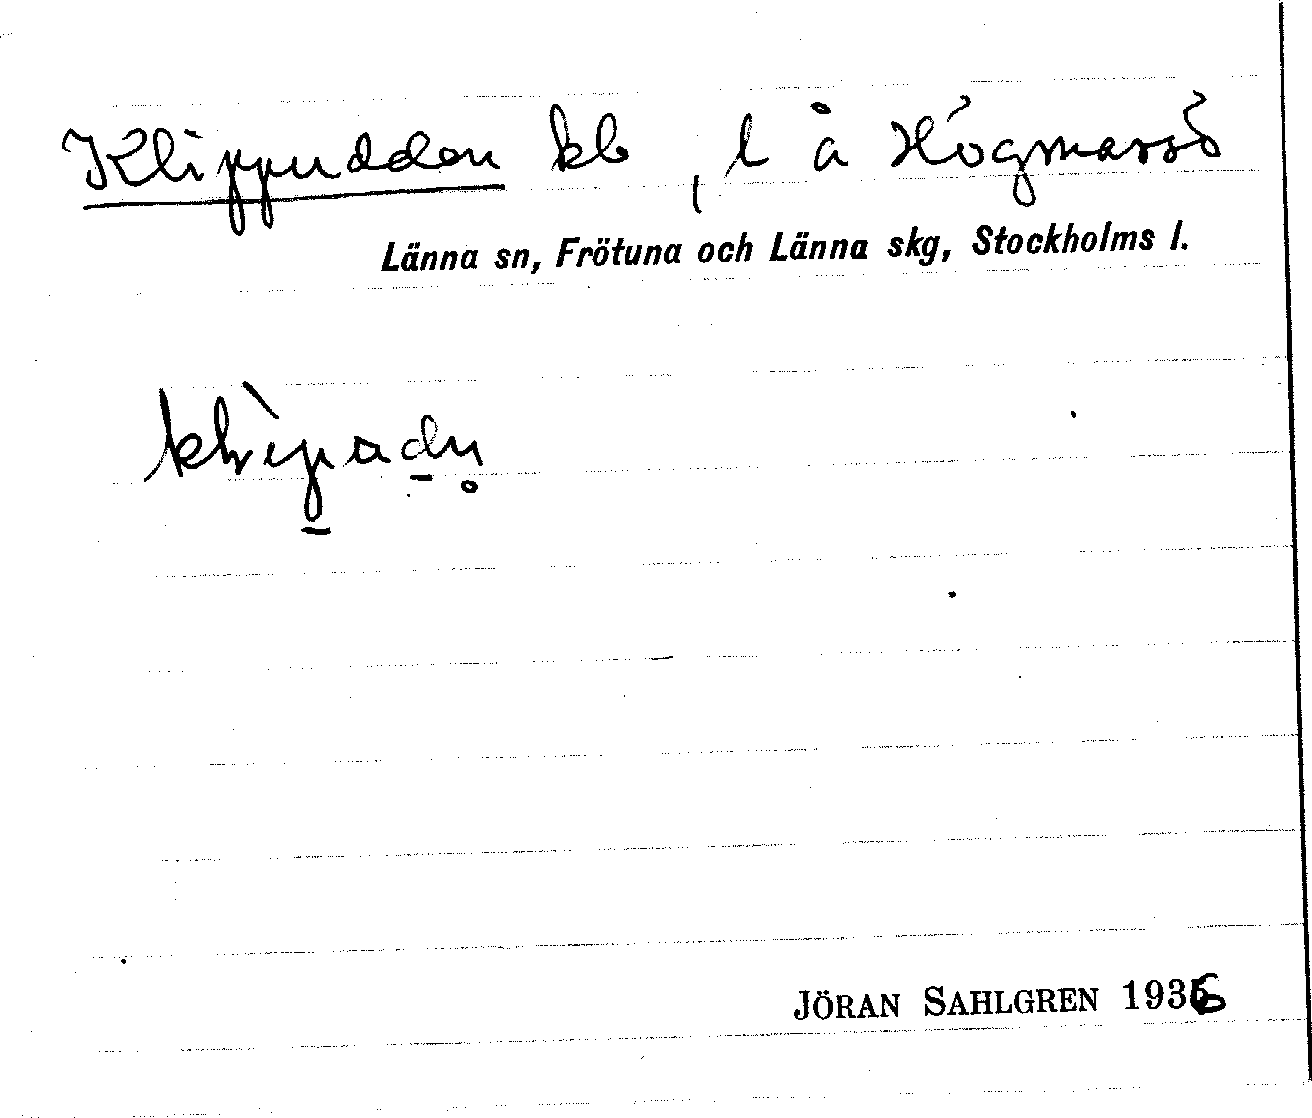 Klippudden kb, l å Högmarsö
Länna sn, Frötuna och Länna skg, Stockholms l.
JÖRAN SAHLGREN 1936